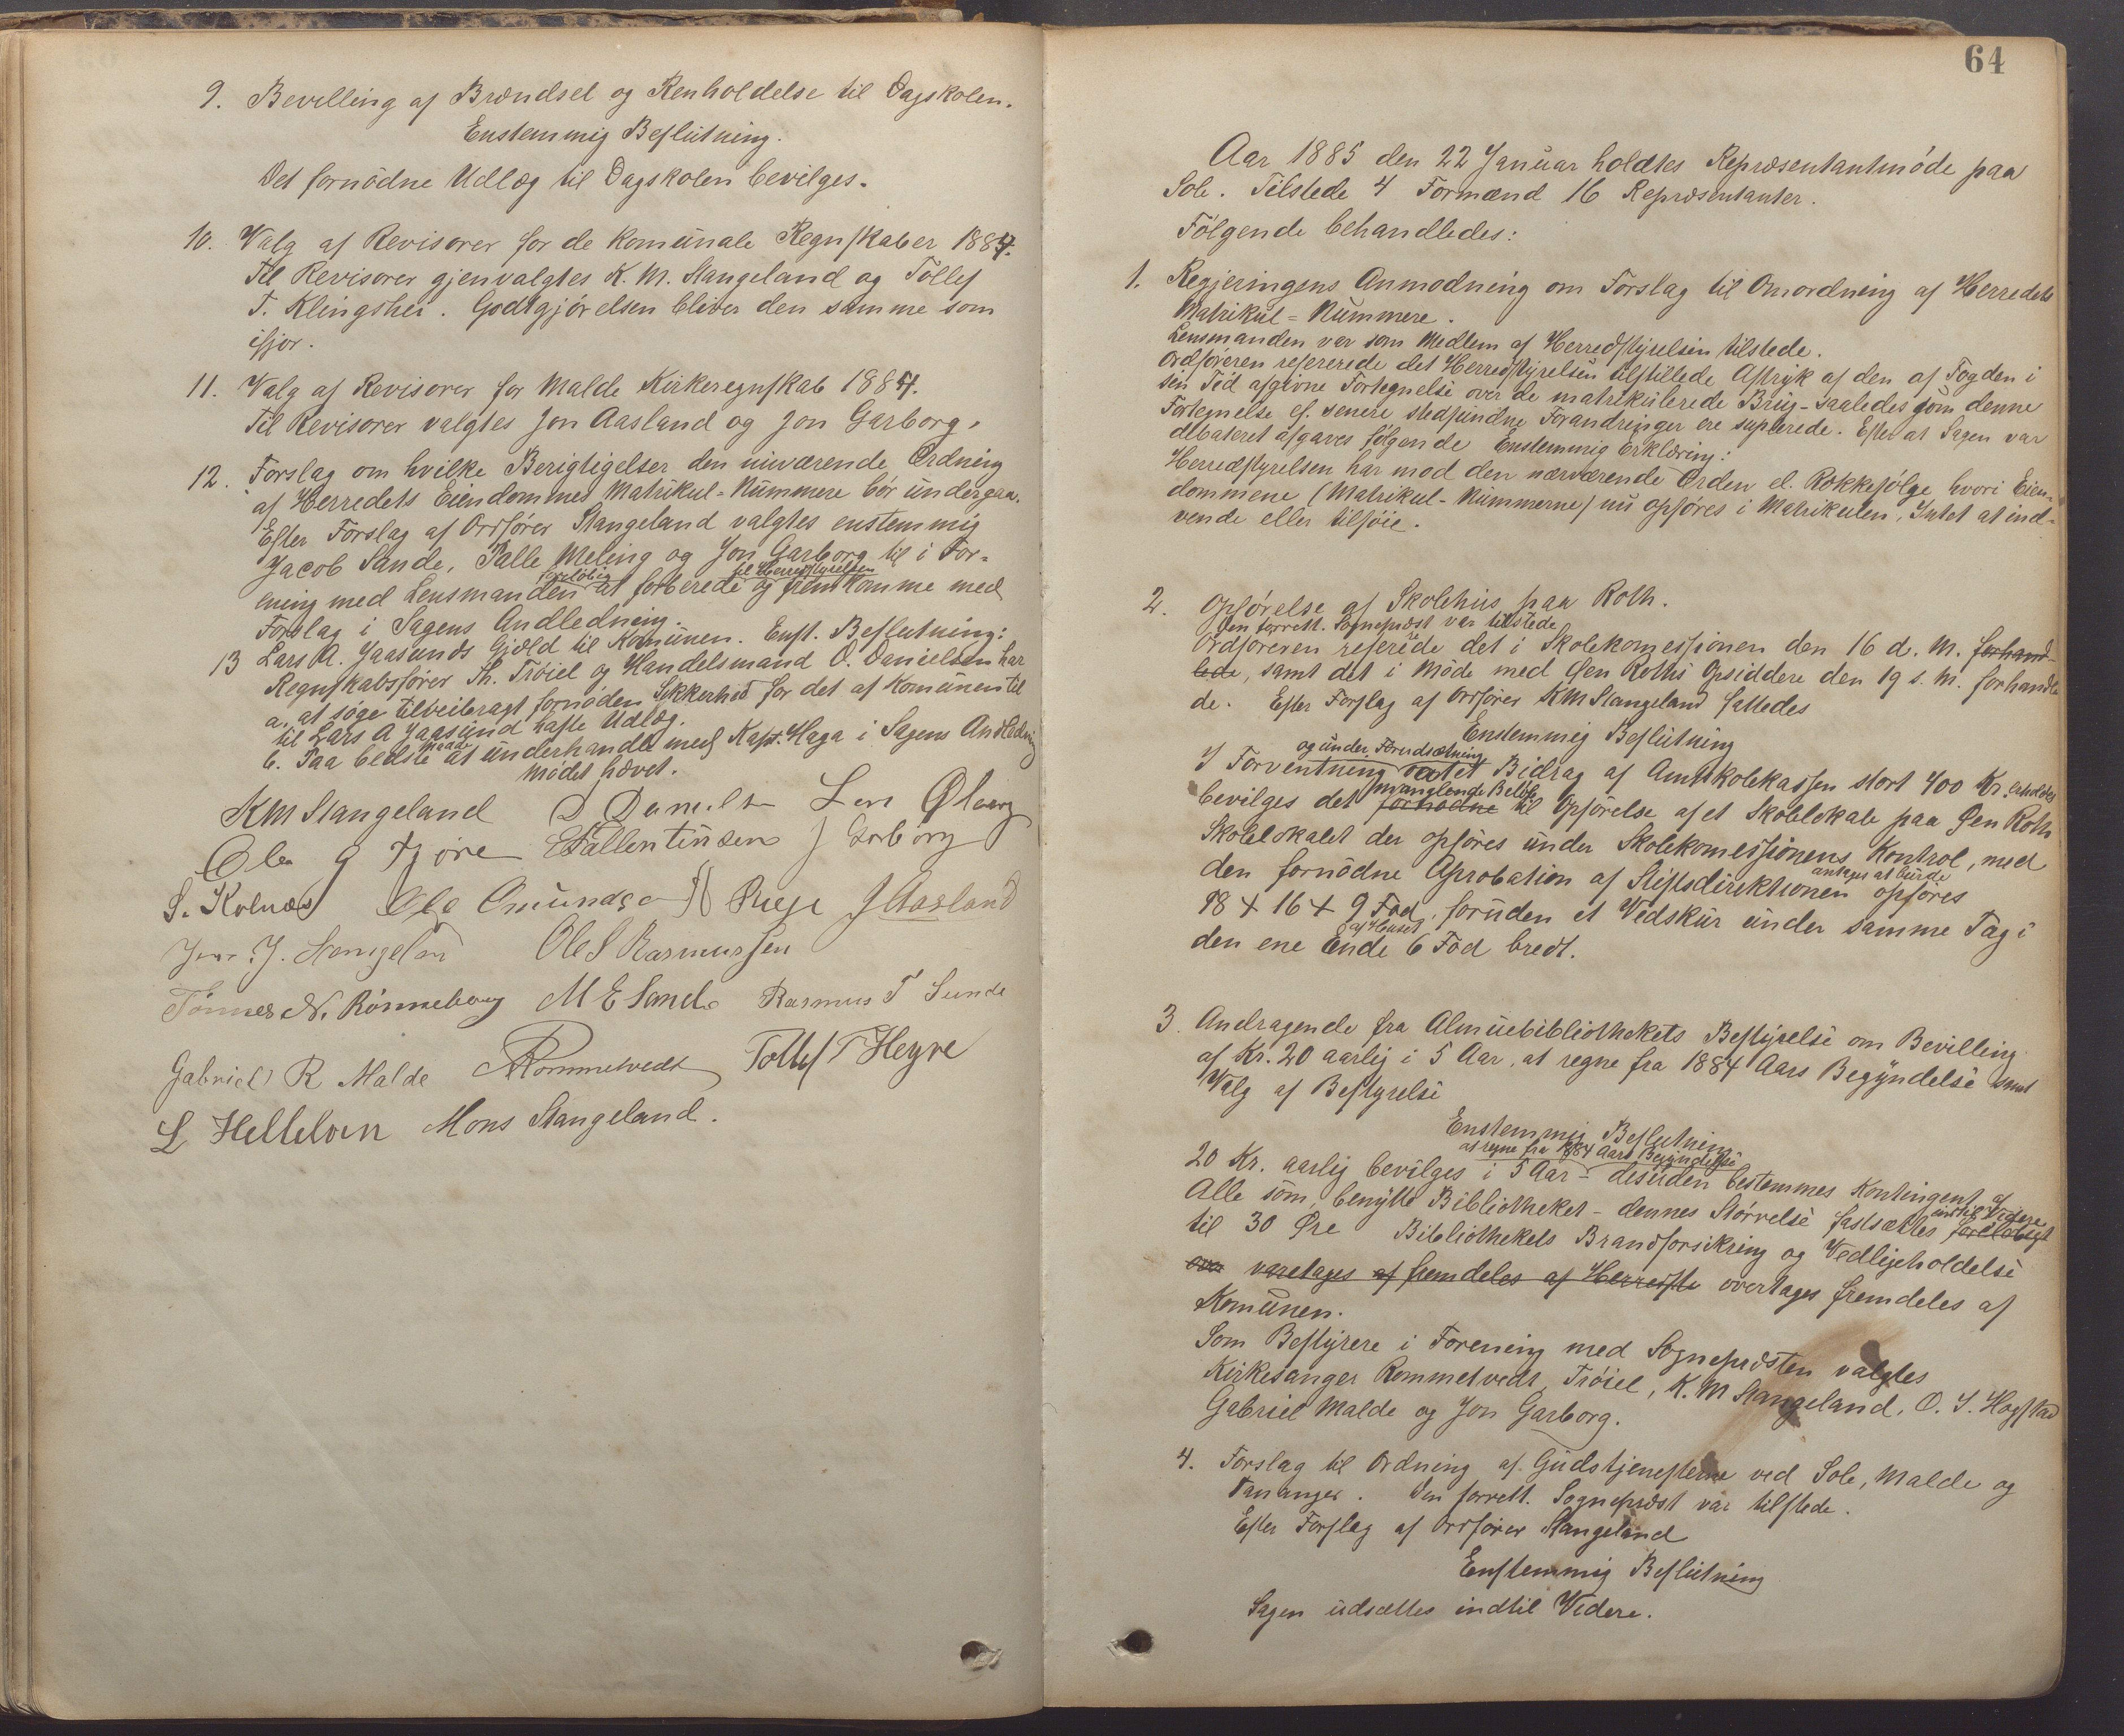 9. Bevilling af Brændsel og Renholdelse til Dagskolen.
Enstemmig Beslutning.
Det fornödne Udlæg til Dagskolen bevilges.
10. Valg af Revisorer for de komunale Regnskaber 1884.
Til Revisorer gjenvalgtes K. M. Stangeland og Tollef
T. Klingshei. Godtgjörelsen bliver den samme som
ifjor.
11. Valg af Revisorer for Malde Kirkeregnskab 1884.
Til Revisorer valgtes Jon Aasland og Jon Garborg.
12. Forslag om hvilke Berigtigelser den nuværende Ordning
af Herredets Eiendommes Matrikul-Nummere bör undergaa.
Efter Forslag af Ordförer Stangeland valgtes enstemmig
Jacob Sande, Palle Meling og Jon Garborg til i For-
ening med Lensmanden foreløbig at forberede og til Herredstyrelsen fremkomme med
Forslag i Sagens Andledning.
13 Lars A. Jaasunds Gjæld til Komunen. Enst. Beslutning:
Regnskabsförer Th. Tröiel og Handelsmand O. Danielsen har
a. at söge tilveiebragt fornöden Sikkerhed for det af Komunen til
til Lars A Jaasund hafte Udlæg.
b. Paa bedste Maade at underhandle med Kapt. Haga i Sagens Andledning
Mödet hævet.
KM Stangeland D Danielsen Lars Öberg
Ole G Tjöre E Fallentinsen J Garborg
S. Kolnæs Ole Omundsen Rege J Aasland
Jon. J. Stangeland Ole S Rasmussen
Tönnes N. Rönneberg M E Sande Rasmus T Sunde
Gabriel R Malde Rommetvedt Tollef T Heyre
L Helleloen Mons Stangeland.
64
Aar 1885 den 22 Januar holdtes Repræsentantmöde paa
Sole. Tilstede 4 Formænd 16 Repræsentanter.
Følgende behandledes:
1. Regjeringens Anmodning om Forslag til Omordning af Herredets
Matrikul-Nummere.
Lensmanden var som Medlem af Herredstyrelsen tilstede.
Ordföreren refererede det Herredstyrelsen tilstillede Aftryk af den af Fogden i
sin Tid afgivne Fortegnelse over de matrikulerede Brug - saaledes som denne
Fortegnelse ef. senere stedfundne Forandringer ere suplerede. Efter at Sagen var
debateret afgaves følgende Enstemmig Erklæring:
Herredstyrelsen har mod den nærværende Orden el. Rækkefølge, hvori Eien-
dommene (Matrikul-Nummerne) nu opføres i Matrikulen, Intet at ind-
vende eller tilføie.
2. Opførelse af Skolehus paa Roth.
Den forrett. Sognepræst var tilstede
Ordföreren refererede det i Skolekomissionen den 16 d. M. forhand-
lede, samt det i Möde med Öen Roths Opsiddere den 19 s. M. forhandle
de. Efter Forslag af Ordförer KM Stangeland fattedes
Enstemmig Beslutning
I Forventning og under Forudsætning at et Bidrag af Amtskolekassen stort 400 Kr. erholdes
bevilges det fornødne manglende Belöb til Opförelse af et Skolelokale paa Öen Roth
Skolelokalet der opføres under Skolekomissionens Kontrol, med
den fornödne Aprobation af Stiftsdirektionen antages at burde opføres
18 + 16 + 9 Fod, foruden et Vedskur under samme Tag i
den ene Ende af Huset 6 Fod bredt.
3. Andragende fra Almuebibliothekets Bestyrelse om Bevilling
af Kr. 20 aarlig i 5 Aar, at regne fra 1884 Aars Begyndelse samt
Valg af Bestyrelse
Enstemmig Beslutning
20 Kr. aarlig bevilges i 5 Aar at regne fra 1884 Aars Begyndelse - desuden bestemmes Kontingent af
Alle som benytte Bibliotheket - dennes Størrelse fastsættes foreløbigt indtil Videre
til 30 Øre Bibliothekets Brandforsikring og Vedligeholdelse
over varetages af fremdeles af Herredsst overtages fremdeles af
Komunen.
Som Bestyrere i Forening med Sognepræsten valgtes
Kirkesanger Rommetvedt, Tröiel, K. M Stangeland, O. S. Hogstad
Gabriel Malde og Jon Garborg.
4. Forslag til Ordning af Gudstjenesterne ved Sole, Malde og
Tananger. Den forrett. Sognepræst var tilstede.
Efter Forslag af Ordförer Stangeland
Enstemmig Beslutning
Sagen udsættes indtil Videre.